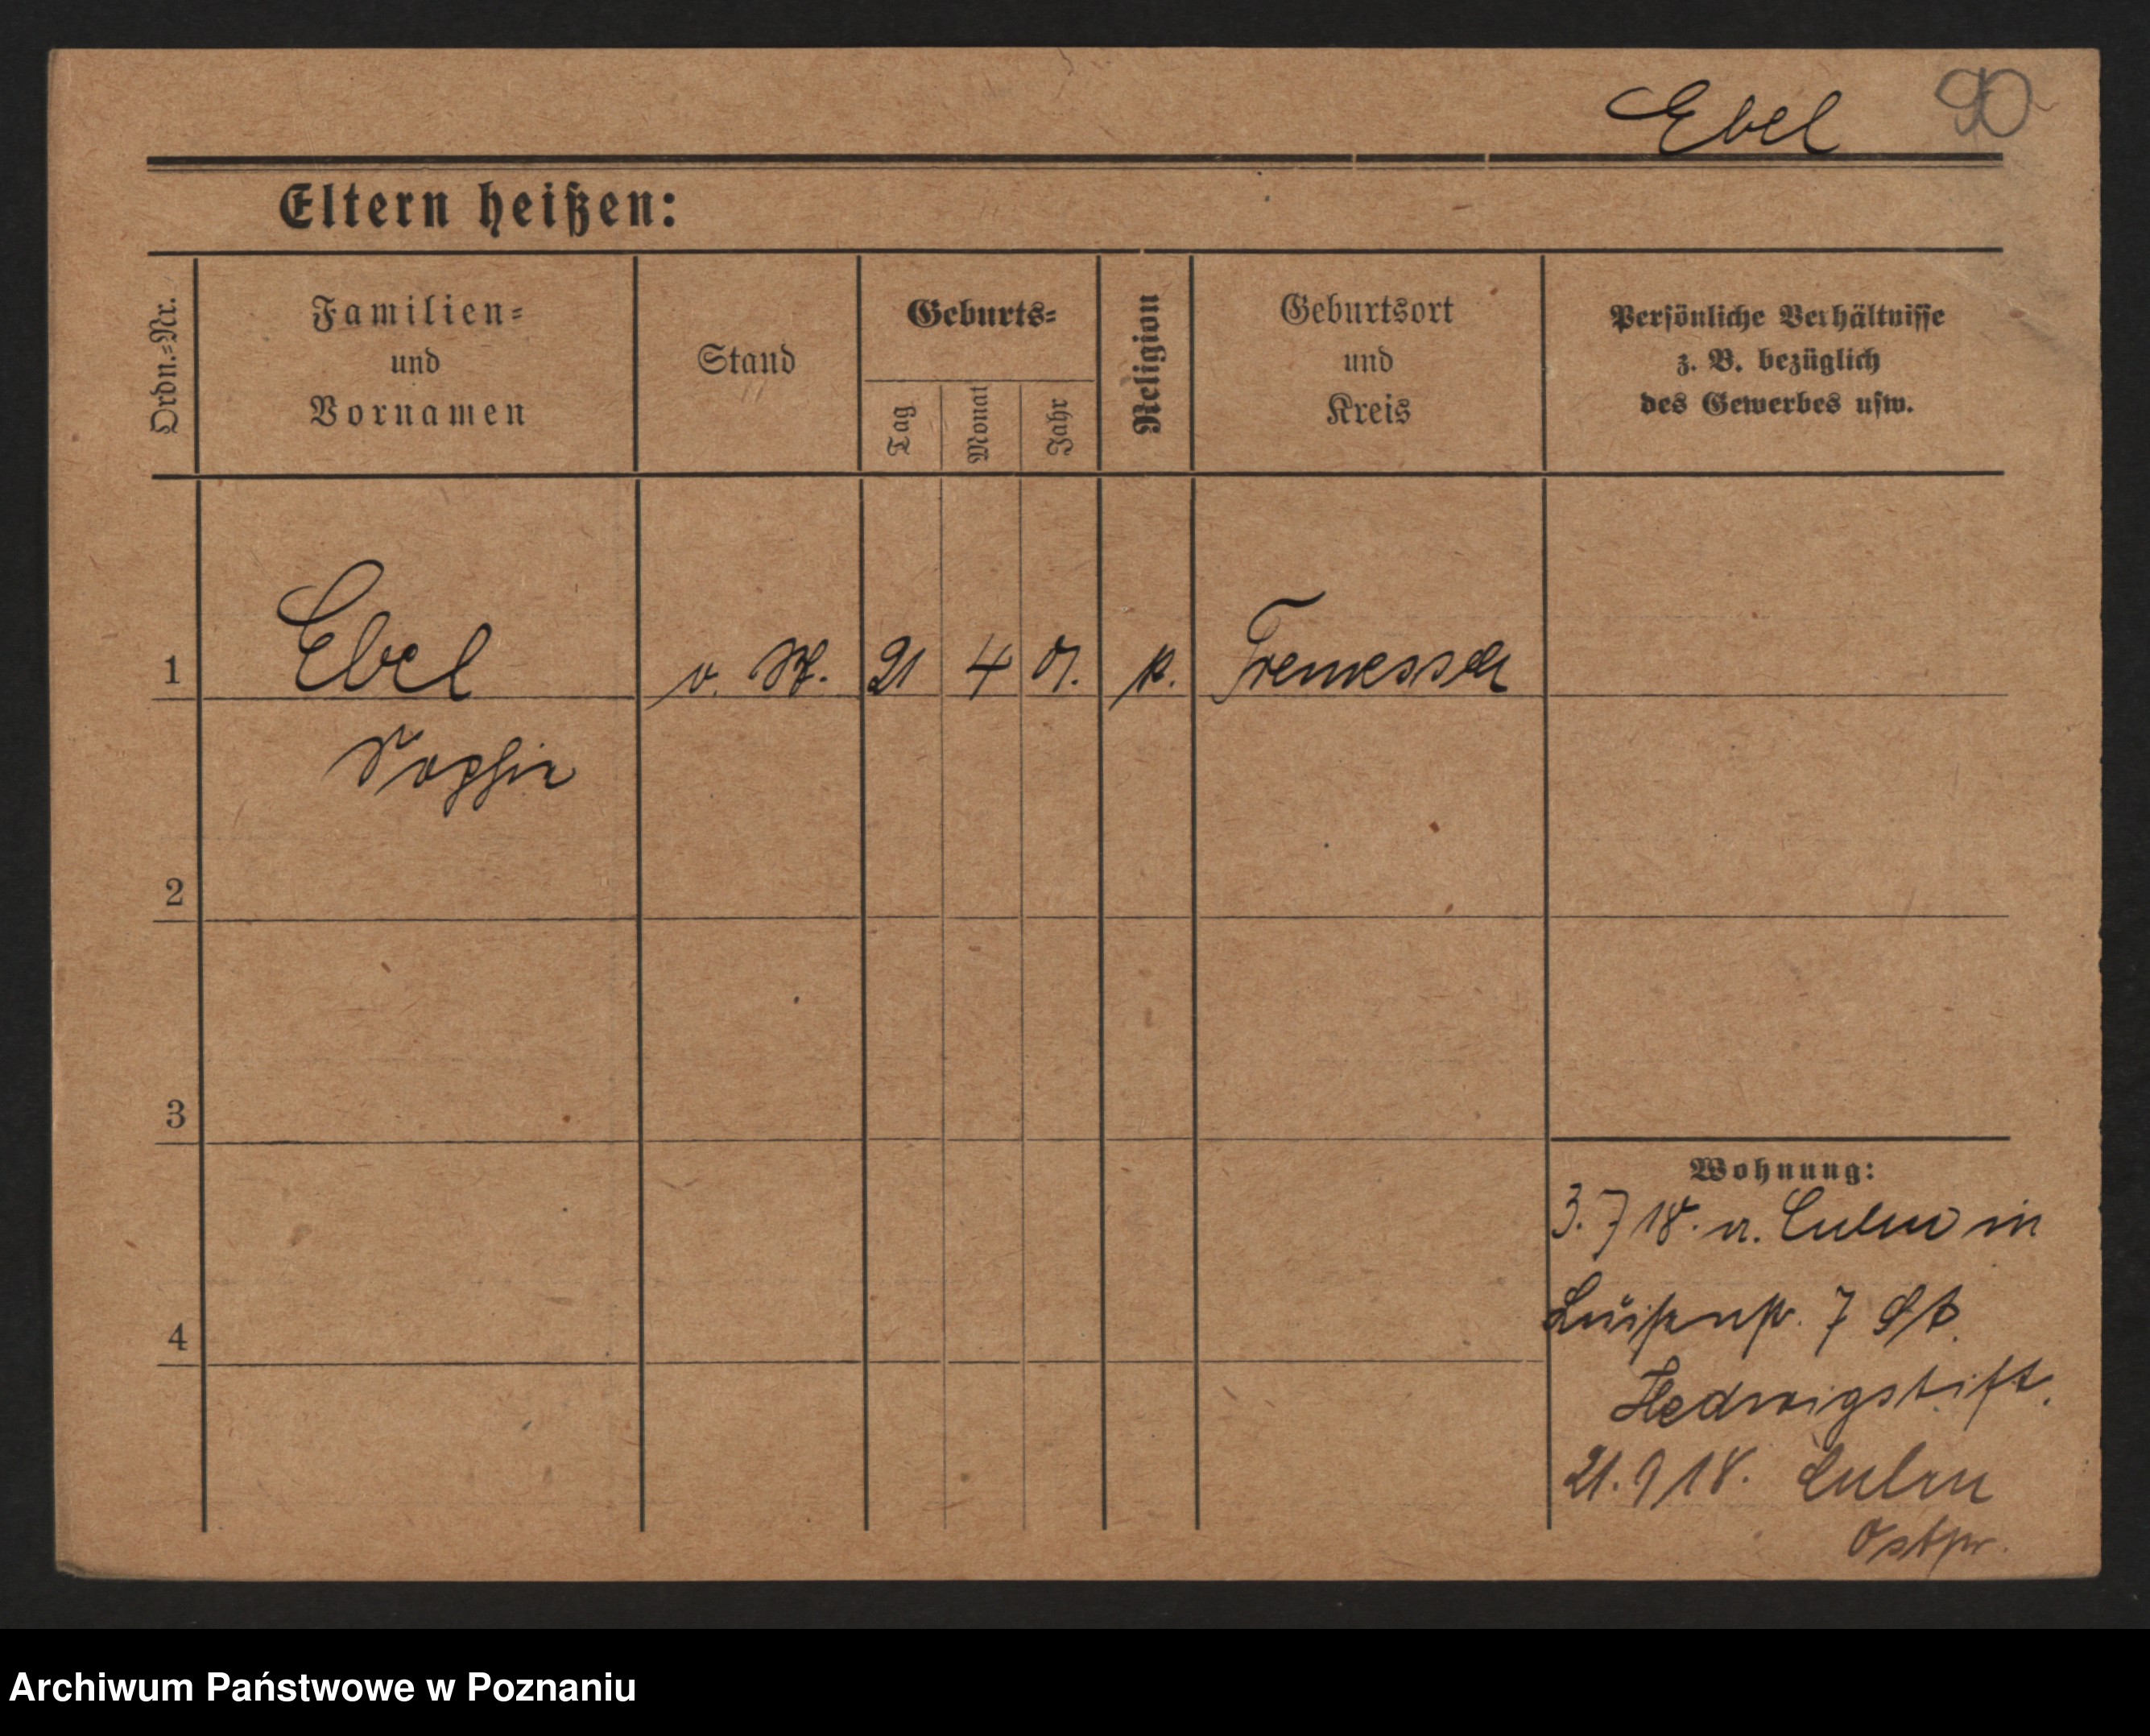 Ebel 90
Eltern heißen:
Ordn.-Nr.
Familien-
und
Vornamen
Stand
Geburts-
Tag
Monat
Jahr
Religion
Geburtsort
und
Kreis
Persönliche Verhältnisse
z. B. bezüglich
des Gewerbes usw.
1 Ebel 21 4 k. Tremessen
Sophie
2
3
4
Wohnung:
3. 7 18. a. Culm in
Luisenstr. 7 St.
Hedwigstift.
21. 9 18. Culm
Ostpr.
Archiwum Państwowe w Poznaniu